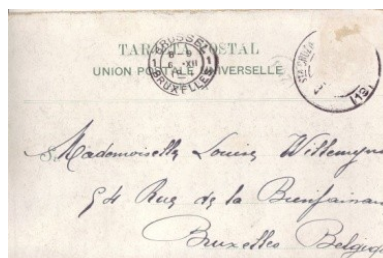 TARJETA POSTAL
UNION POSTALE UNIVERSELLE
BRUSSEL
1 1
6 XII
BRUXELLES
(12)
Mademoiselle Louise Willemyns
54 Rue de la Bienfaisan
Bruxelles Belgiq